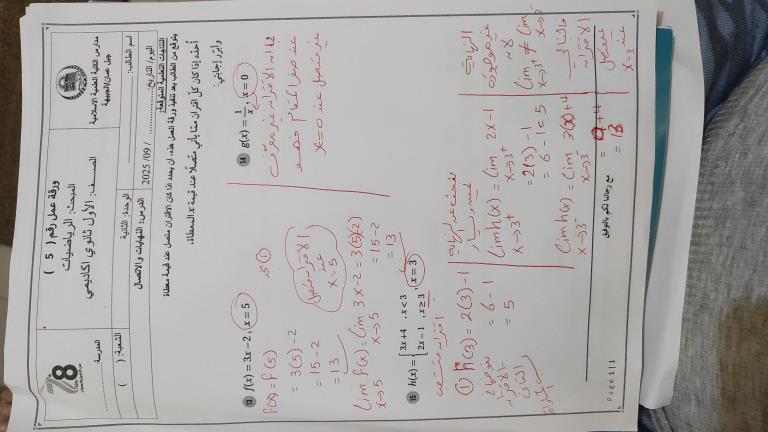 مدارس الكلية العلمية الاسلامية
جبل عمان/الجبيهة
ورقة عمل رقم ( 5 )
المبحث: الرياضيات
الصف: الأول ثانوي أكاديمي
المدرسة:
اسم الطالب:
الشعبة: ( )
اليوم / التاريخ: / 09/ 2025
الوحدة: الثانية
الدرس: النهايات والاتصال
النتاجات التعليمية المتوقعة:
يتوقع من الطالب بعد تنفيذ ورقة العمل هذه، ان يحدد اذا كان الاقتران متصل عند قيمة معطاة
أُحدد إذا كان كل اقتران مما يأتي متصلًا عند قيمة x المعطاة،
وأبرر إجابتي:
13 f(x) = 3x − 2, x = 5
f(5)
= 3(5) − 2
= 15 − 2
= 13
Lim f(x) = Lim 3x − 2 = 3(5) − 2
x→5 x→5
= 15 − 2
= 13
الاقتران متصل
عند
x = 5
14 g(x) = 1/x, x = 0
بما أن الاقتران غير معرف
عند صفر المقام فهو
غير متصل عند x = 0
15 h(x) = { 3x + 4 , x < 3
2x − 1 , x ≥ 3 , x = 3
① h(3) = 2(3) − 1
= 6 − 1
= 5
Lim h(x) = Lim 2x − 1
x→3⁺ x→3⁺
= 2(3) − 1
= 6 − 1 = 5
Lim h(x) = Lim 3(3) + 4
x→3⁻ x→3⁻
= 9 + 4
= 13
النهاية
غير موجودة
لأن
Lim ≠ Lim
x→3⁺ x→3⁻
الاقتران
غير متصل
عند
x = 3
مع رجائنا لكم بالتوفيق
Page 1 | 1